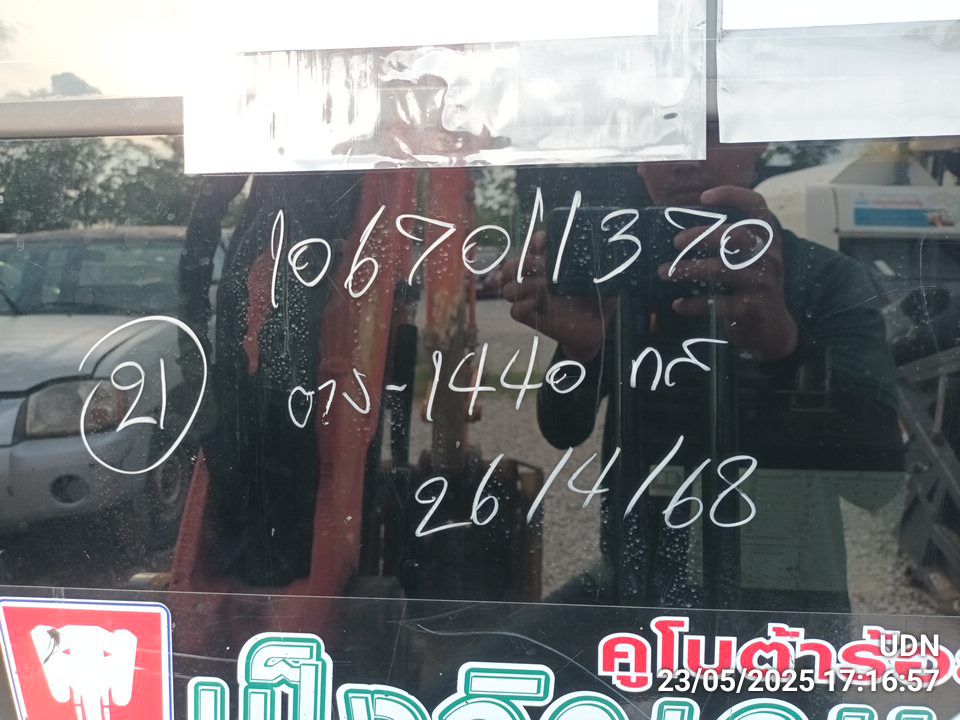 1067011370
21
ตาว-1440 กส์
26/4/68
คูโบต้าร้อย
UDN
23/05/2025 17:16:57